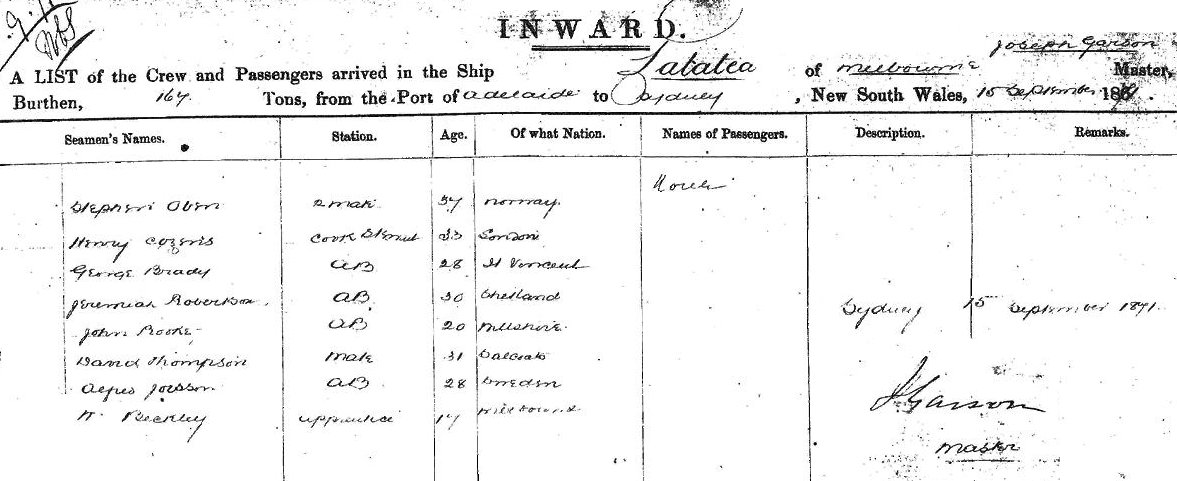 INWARD.
Joseph Garson
A LIST of the Crew and Passengers arrived in the Ship of Melbourne Master,
Burthen, 167 Tons, from the Port of Adelaide to Sydney, New South Wales, 15 September 18
Seamen's Names. Station. Age. Of what Nation. Names of Passengers. Description. Remarks.
Stephen 2 Mate 37 Norway
Henry Cozens Cook 33 London
George Brady AB 28 St Vincent
Jeremiah Robertson AB 30 Shetland
John Rooke AB 20
David Thompson Mate 31
AB 28 Sweden
Beckley Apprentice 17
Sydney 15 September 1871.
J Garson
Master